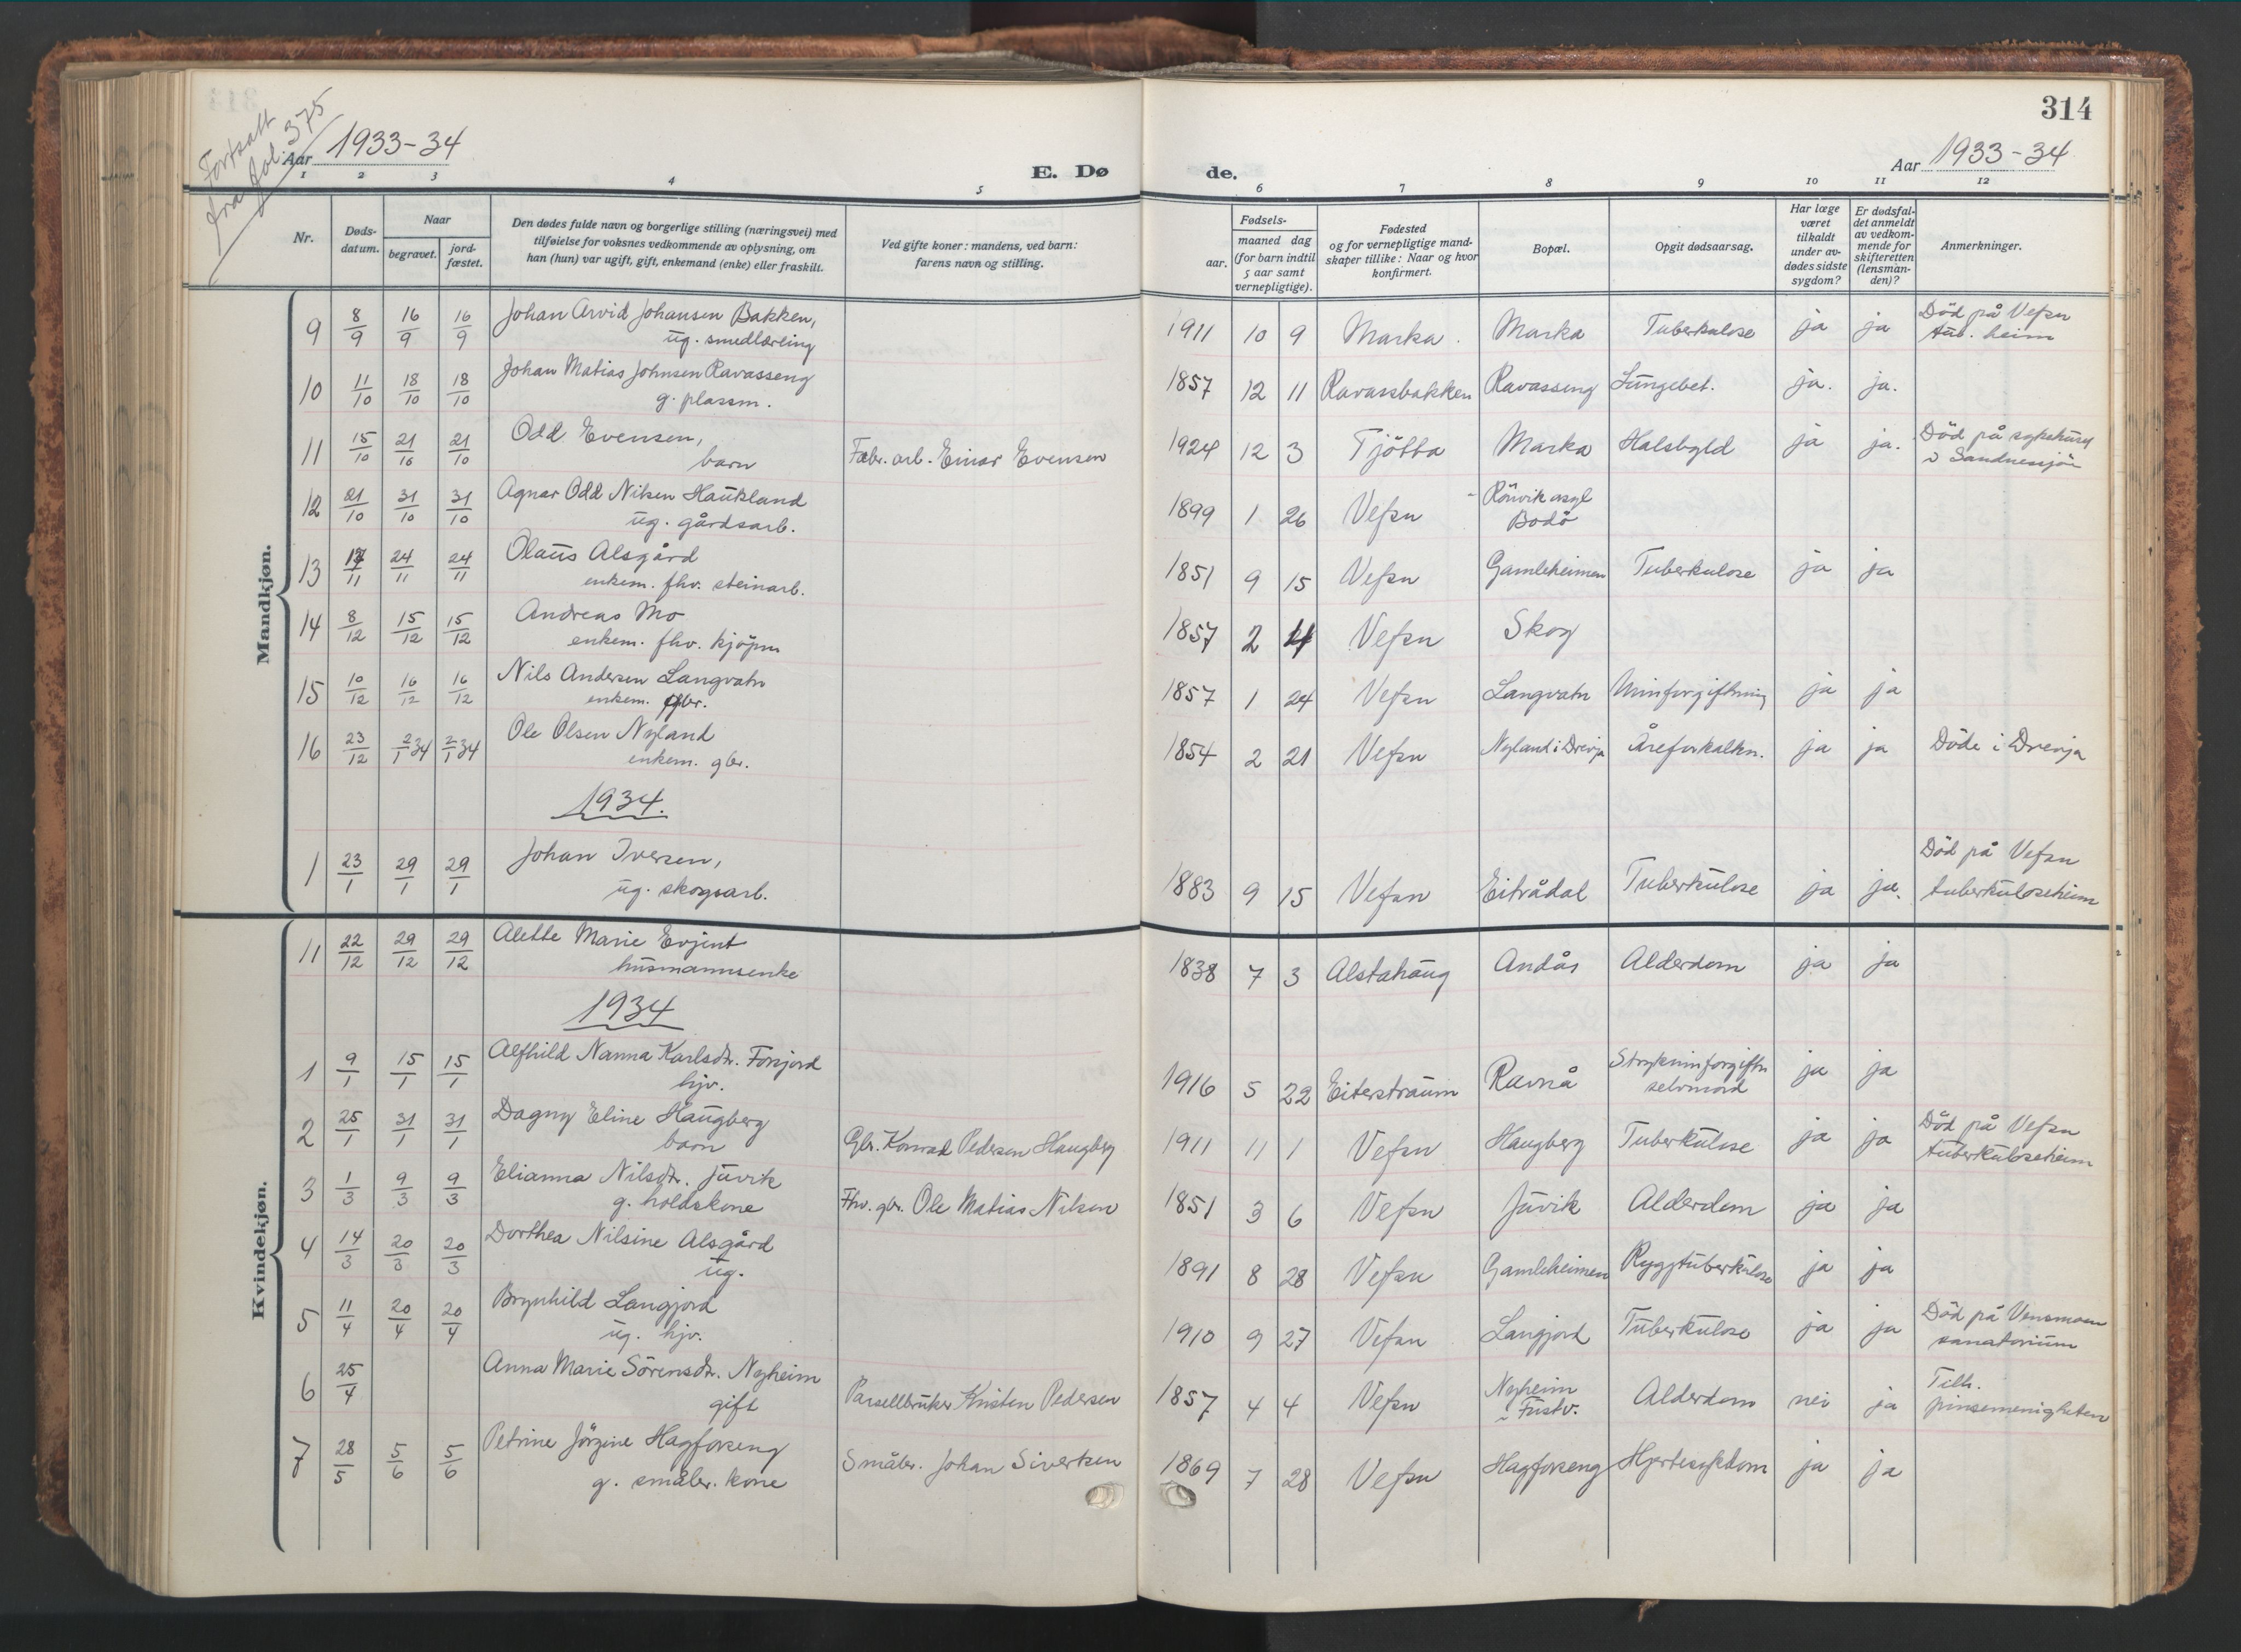 314
Fortsatt
fra fol. 375
Aar 1933-34
E. Dø
de.
Aar 1933-34
1 2 3 4 5 6 7 8 9 10 11 12
Nr.
Døds-
datum.
Naar
begravet.
jord-
fæstet.
Den dødes fulde navn og borgerlige stilling (næringsvei) med
tilføielse for voksnes vedkommende av oplysning, om
han (hun) var ugift, gift, enkemand (enke) eller fraskilt.
Ved gifte koner: mandens, ved barn:
farens navn og stilling.
Fødsels-
aar.
maaned dag
(for barn indtil
5 aar samt
vernepligtige).
Fødested
og for vernepligtige mand-
skaper tillike: Naar og hvor
konfirmert.
Bopæl.
Opgit dødsaarsag.
Har læge
været
tilkaldt
under av-
dødes sidste
sygdom?
Er dødsfal-
det anmeldt
av vedkom-
mende for
skifteretten
(lensman-
den)?
Anmerkninger.
Mandkjøn.
9 8/9 16/9 16/9 Johan Arvid Johansen Bakken,
ug. smedlærling
1911 10 9 Marka. Marka Tuberkulose ja ja Död på Vefsn
tub. heim
10 11/10 18/10 18/10 Johan Matias Johnsen Ravasseng
g. plassm.
1857 12 11 Ravassbakken Ravasseng Lungebet. ja. ja.
11 15/10 21/10 21/10 Odd Evensen,
barn Fabr. arb. Einar Evensen
1924 12 3 Tjötta Marka Halsbyld ja ja. Död på sykehuset
i Sandnessjöen
12 21/10 31/10 31/10 Agnar Odd Nilsen Haukland
ug. gårdsarb.
1899 1 26 Vefsn Rönvik asyl
Bodö
13 17/11 24/11 24/11 Olaus Alsgård
enkem. fhv. steinarb.
1851 9 15 Vefsn Gamleheimen Tuberkulose ja ja
14 8/12 15/12 15/12 Andreas Mo
enkem. fhv. kjöpm
1857 2 4 Vefsn Skog
15 10/12 16/12 16/12 Nils Andersen Langvatn
enkem. gbr.
1857 1 24 Vefsn Langvatn Urinforgiftning ja ja
16 23/12 2/1 34 2/1 34 Ole Olsen Nyland
enkem. gbr.
1854 2 21 Vefsn Nyland i Drevja Åreforkalkn. ja ja Döde i Drevja
1934.
1 23/1 29/1 29/1 Johan Iversen,
ug. skogsarb.
1883 9 15 Vefsn Eitrådal Tuberkulose ja ja. Död på Vefsn
tuberkuloseheim
Kvindekjøn.
11 22/12 29/12 29/12 Alette Marie Evjent
husmannsenke
1838 7 3 Alstahaug Andås Alderdom ja ja
1934
1 9/1 15/1 15/1 Alfhild Nanna Karlsdtr. Forsjord
hjv.
1916 5 22 Eiterstraum Ravnå Strykninforgiftn
selvmord ja ja
2 25/1 31/1 31/1 Dagny Eline Haugberg
barn Gbr. Konrad Pedersen Haugberg
1911 11 1 Vefsn Haugberg Tuberkulose ja ja Död på Vefsn
tuberkuloseheim
3 1/3 9/3 9/3 Elianna Nilsdtr. Juvik
g. holdskone Fhv. gbr. Ole Matias Nilsen
1851 3 6 Vefsn Juvik Alderdom ja ja
4 14/3 20/3 20/3 Dorthea Nilsine Alsgård
ug.
1891 8 28 Vefsn Gamleheimen Ryggtuberkulose ja ja
5 11/4 20/4 20/4 Brynhild Langjord
ug. hjv.
1910 9 27 Vefsn Langjord Tuberkulose ja ja Död på Vensmoen
sanatorium
6 25/4 Anna Marie Sörensdtr. Nyheim
gift Parsellbruker Kristen Pedersen
1857 4 4 Vefsn Nyheim
i Fustv. Alderdom nei ja Tilh.
pinsemenigheten
7 28/5 5/6 5/6 Petrine Jörgine Hagforseng
g. småbr. kone Småbr. Johan Sivertsen
1869 7 28 Vefsn Hagforseng Hjertesykdom ja ja